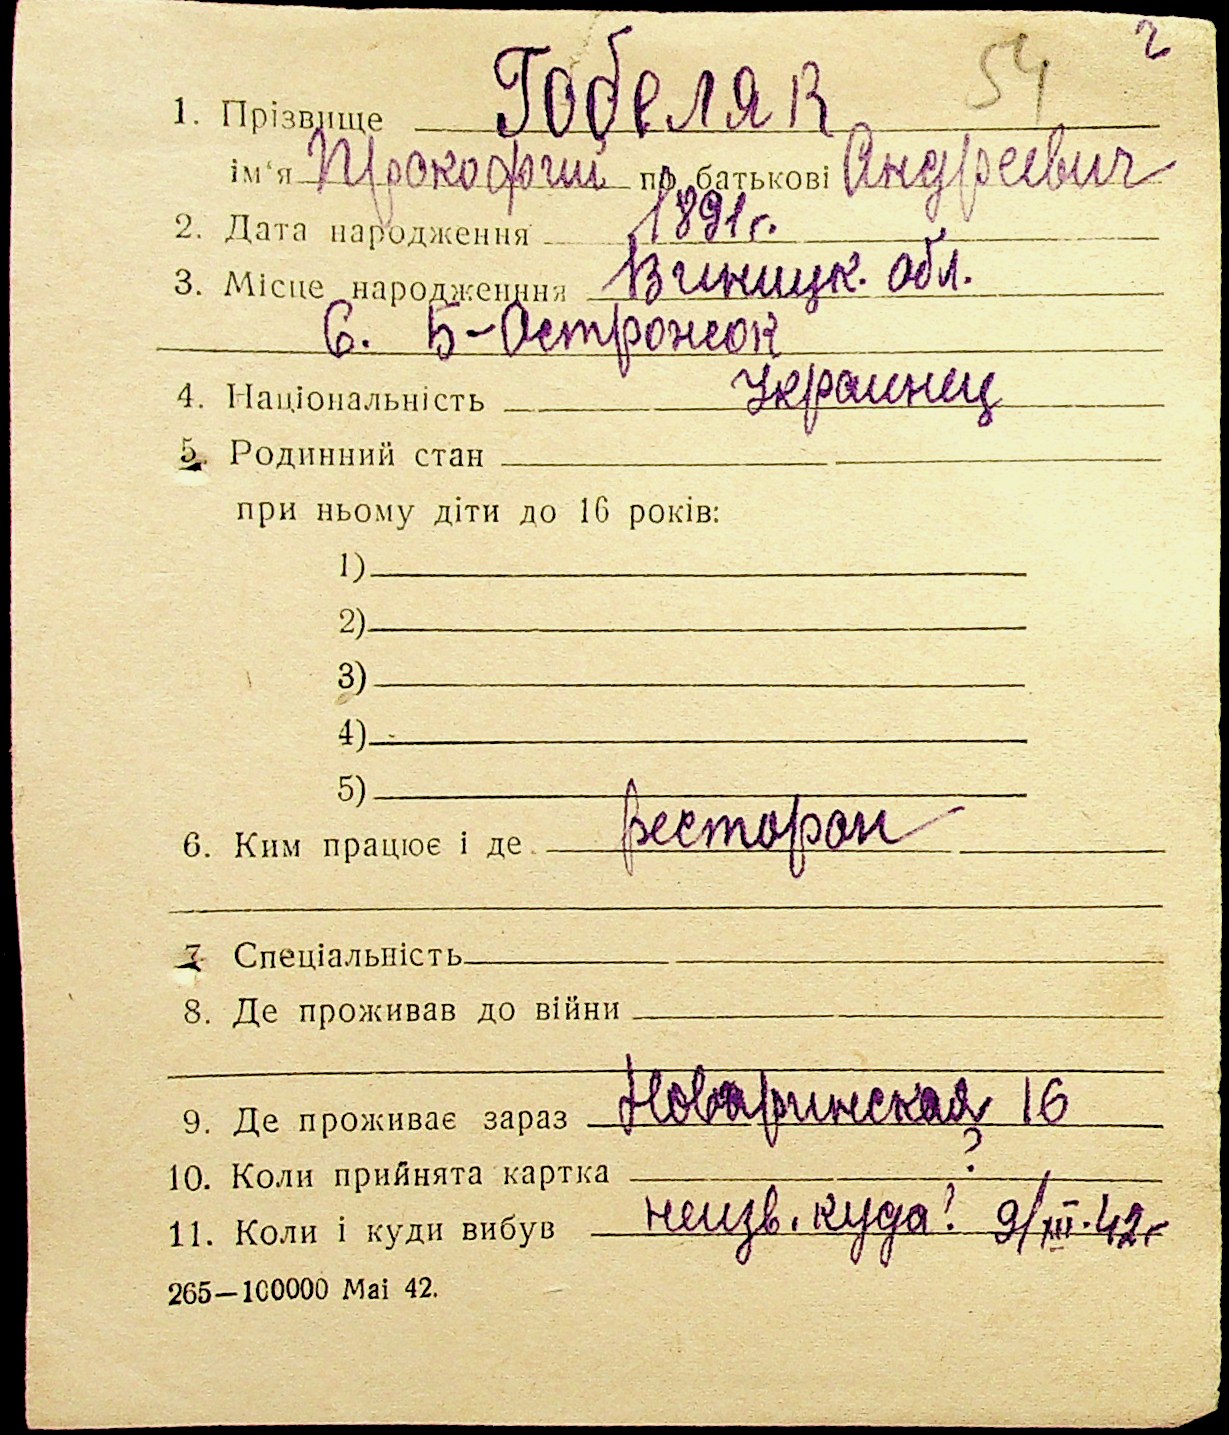 г
54
1. Прізвище Гобеляк
ім'я Прокофий по батькові Андреевич
2. Дата народження 1891 г.
3. Місце народженння Виницк. обл.
С. Б-Острожок
4. Національність Украинец
5. Родинний стан
при ньому діти до 16 років:
1)
2)
3)
4)
5)
6. Ким працює і де ресторан
7 Спеціальність
8. Де проживав до війни
9. Де проживає зараз 16
10. Коли прийнята картка ?
11. Коли і куди вибув неизв. куда? 9/III.42г
265—100000 Mai 42.